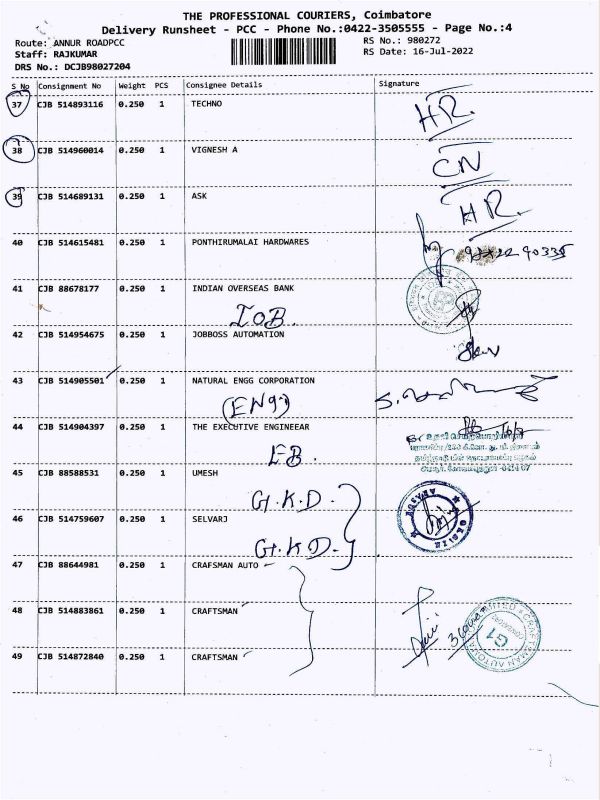 THE PROFESSIONAL COURIERS, Coimbatore
Delivery Runsheet - PCC - Phone No.:0422-3505555 - Page No.:4
Route: ANNUR ROADPCC
RS No.: 980272
Staff: RAJKUMAR
RS Date: 16-Jul-2022
DRS No.: DCJB98027204
S No Consignment No Weight PCS Consignee Details Signature
37 CJB 514893116 0.250 1 TECHNO HR.
38 CJB 514960014 0.250 1 VIGNESH A CN
39 CJB 514689131 0.250 1 ASK HR.
40 CJB 514615481 0.250 1 PONTHIRUMALAI HARDWARES
41 CJB 88678177 0.250 1 INDIAN OVERSEAS BANK
IOB.
42 CJB 514954675 0.250 1 JOBBOSS AUTOMATION
43 CJB 514905501 0.250 1 NATURAL ENGG CORPORATION
(ENG)
44 CJB 514904397 0.250 1 THE EXECUTIVE ENGINEEAR
EB.
45 CJB 88588531 0.250 1 UMESH
G.K.D.
46 CJB 514759607 0.250 1 SELVARJ
G.K.D.
47 CJB 88644981 0.250 1 CRAFSMAN AUTO
48 CJB 514883861 0.250 1 CRAFTSMAN
49 CJB 514872840 0.250 1 CRAFTSMAN